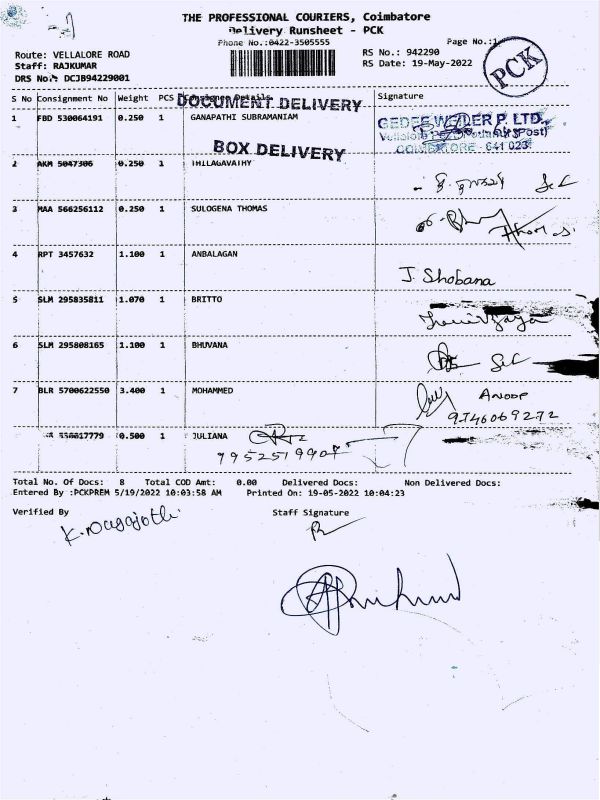 THE PROFESSIONAL COURIERS, Coimbatore
Delivery Runsheet - PCK
Phone No.:0422-3505555
Page No.:1
Route: VELLALORE ROAD
RS No.: 942290
Staff: RAJKUMAR
RS Date: 19-May-2022
DRS No.: DCJB94229001
PCK
S No Consignment No Weight PCS Details Signature
DOCUMENT DELIVERY
1 FBD 530064191 0.250 1 GANAPATHI SUBRAMANIAM
GEDEE WEILER P. LTD.,
COIMBATORE - 641 023
BOX DELIVERY
2 AKM 5047306 0.250 1 THILAGAVATHY
3 MAA 566256112 0.250 1 SULOGENA THOMAS
Thomas
4 RPT 3457632 1.100 1 ANBALAGAN
J. Shobana
5 SLM 295835811 1.070 1 BRITTO
6 SLM 295808165 1.100 1 BHUVANA
7 BLR 5700622550 3.400 1 MOHAMMED
ANOOP
9746069272
0.500 1 JULIANA
7952519907
Total No. Of Docs: 8 Total COD Amt: 0.00 Delivered Docs: Non Delivered Docs:
Entered By :PCKPREM 5/19/2022 10:03:58 AM Printed On: 19-05-2022 10:04:23
Verified By Staff Signature